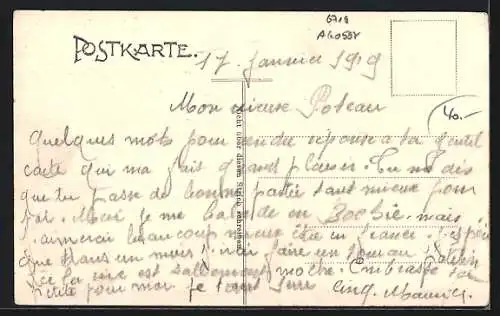 6718
AGOSBY
POSTKARTE.
17 Janvier 1919
Mon vieux Poteau
Quelques mots pour rendre réponse à ta gentil
carte qui ma fait grand plaisir. Tu me dis
que tu passe de bonne partie tant mieux pour
toi. Moi je me balade en Bochie. mais
j'aimerai beaucoup mieux être en France. J'espère
que dans un mois faire un tour au Patelin
Ici la vie est salement moche. Embrasse
pour moi je serre
Cinq. Maurice.
40.-
Nicht über diesen Strich schreiben.